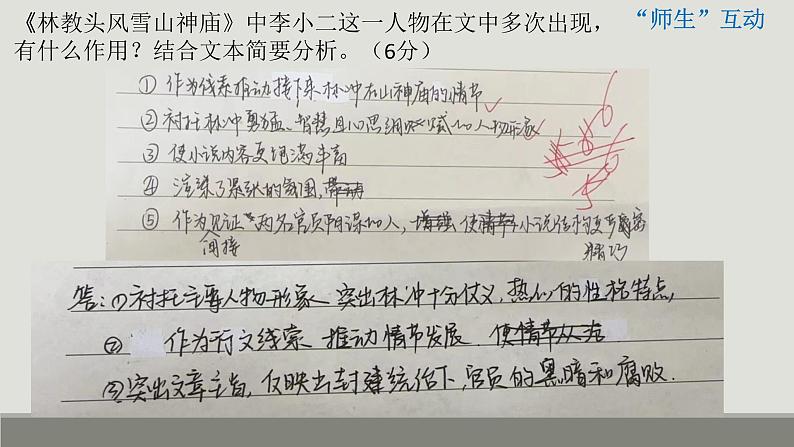 《林教头风雪山神庙》中李小二这一人物在文中多次出现，
“师生”互动
有什么作用？结合文本简要分析。（6分）
① 作为线索推动接下来林冲在山神庙的情节
② 衬托林冲勇猛、智慧且心思细腻的人物形象
③ 使小说内容更饱满丰富
④ 渲染了紧张的氛围，
⑤ 作为见证 两名官员阴谋的人， 使 小说结构更 紧密
间接
精巧
答：(1) 衬托主要人物形象 突出林冲十分仗义，热心的性格特点，
② 作为行文线索 推动情节发展
③ 突出文章主旨，反映出封建统治下，官员的黑暗和腐败.